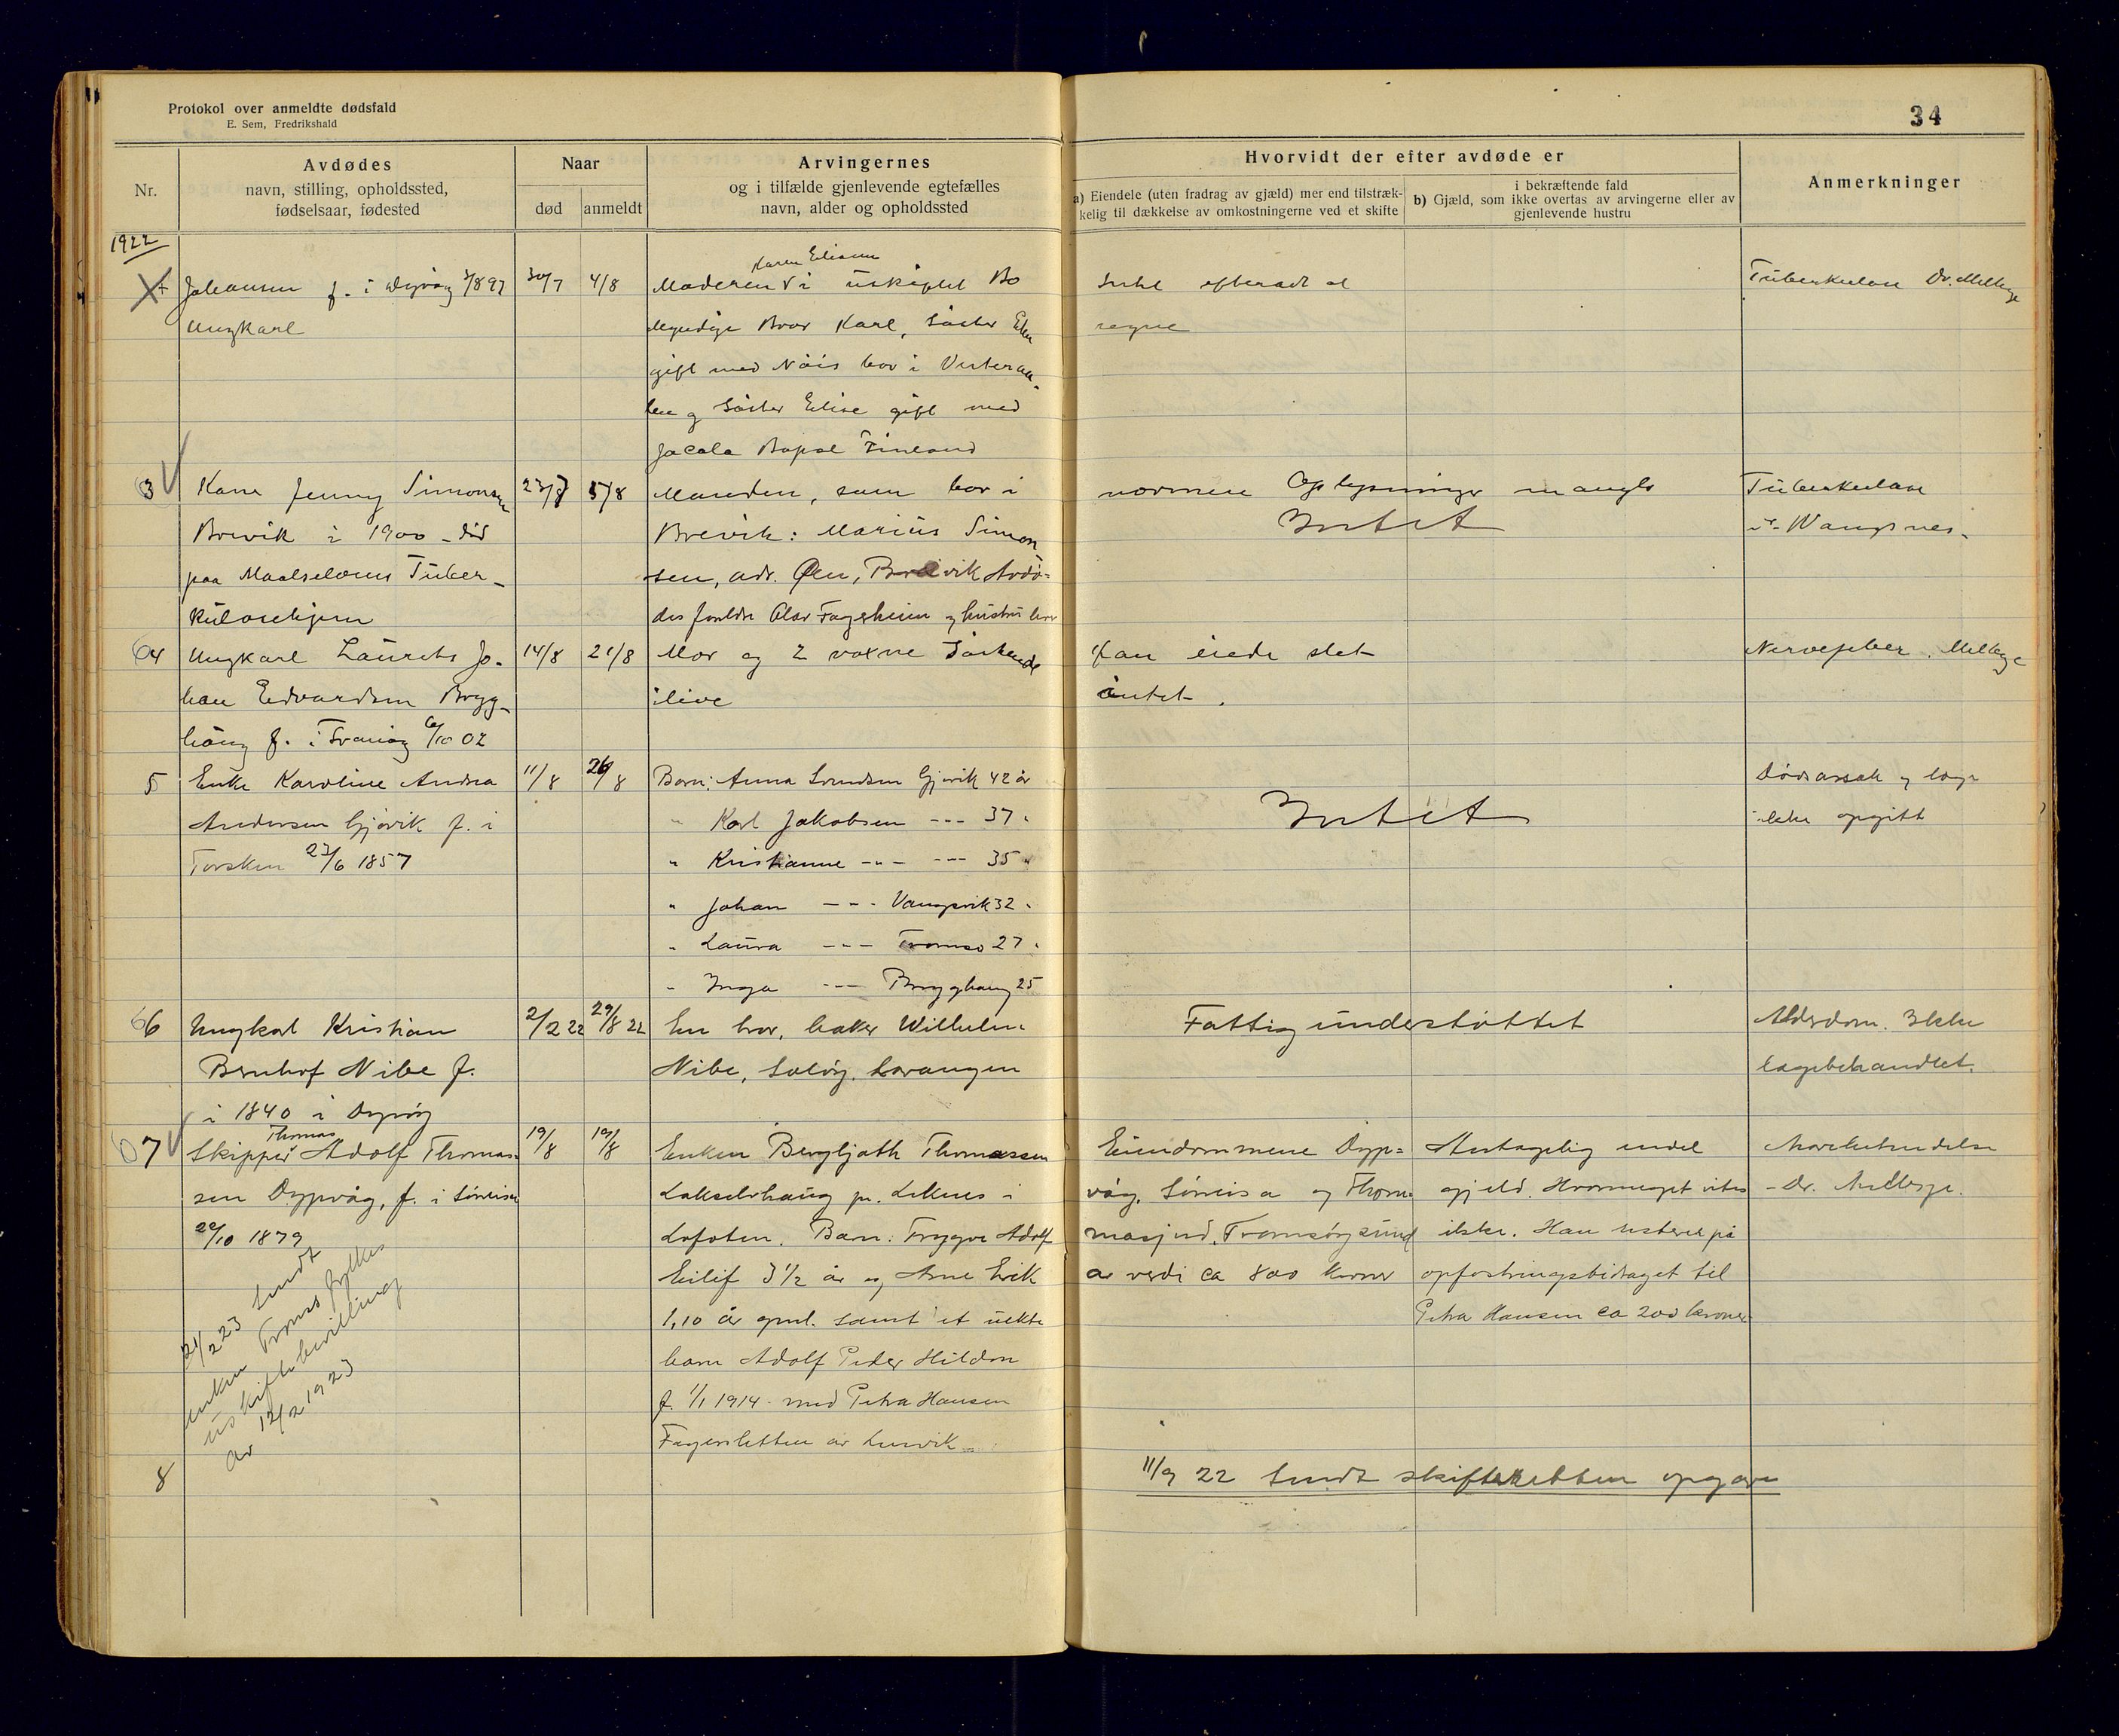 Protokol over anmeldte dødsfald
E. Sem, Fredrikshald
34
Nr.
Avdødes
navn, stilling, opholdssted,
fødselsaar, fødested
Naar
død
anmeldt
Arvingernes
og i tilfælde gjenlevende egtefælles
navn, alder og opholdssted
Hvorvidt der efter avdøde er
a) Eiendele (uten fradrag av gjæld) mer end tilstræk-
kelig til dækkelse av omkostningerne ved et skifte
i bekræftende fald
b) Gjæld, som ikke overtas av arvingerne eller av
gjenlevende hustru
Anmerkninger
1922
Johansen f. i 3/8 97
Ungkarl
30/7
4/8
Karen Elisene
Moderen i uskiftet Bo
Myndige Bror Karl, Søster
gift med Nöis bor i Vesteraa-
len og Søster Elise gift med
Finland
Intet efterladt at
regne
Tuberkulose Dr.
63
Kone Jenny Simonsen
Brevik i 1900 - død
paa Maalselvens Tuber-
kulosehjem
23/7
5/8
Manden, som bor i
Brevik: Marius Simon
sen, adr. Øen, Brevik Avdø-
des foreldre Olav Fagerheim og hustru lever
nærmere Oplysninger mangler
Intet
Tuberkulose
Wangsnes.
64
Ungkarl Laurits Jo-
han Edvardsen Brygg-
haug f. i Tranøy 6/10 02
14/8
21/8
Mor og 2 voxne Søskende
ilive
Han eiede slet
intet.
Nervefeber.
5
Enke Karoline Andrea
Andersen Gjøvik f. i
Torsken 27/6 1857
11/8
26/8
Barn: Anna Svendsen Gjøvik 42 år
" Karl Jakobsen --- 37 "
" Kristianne --- --- 35 "
" Johan --- Vangsvik 32 "
" Laura --- Tromsø 27 "
" Inga --- Brygghaug 25
Intet
Dødsarsak og læge
ikke opgitt
66
Ungkarl Kristian
Bernhof Nibe f.
i 1840 i Dyrøy
2/2 22
29/8 22
En bror, baker Wilhelm
Nibe, Soløy. Lavangen
Fattigunderstøttet
Alderdom. Ikke
lægebehandlet.
67
Thomas
Skipper Adolf Thomas-
sen Dypvåg, f. i Sørreisa
22/10 1879
19/8
19/8
Enken Bergljoth Thomassen
Lakselvhaug pr. Leknes i
Lofoten. Barn: Tryggve Adolf
Eilif 3 1/2 år og Arne Erik
1,10 år gml. samt et uekte
barn Adolf Peder Hildon
f. 1/1 1914 med Petra Hansen
Fagersletten av Lenvik
Eiendommene Dyp-
våg, Sørreisa og Thom
masjord, Tromsøysund
av verdi ca 800 kroner
Antagelig endel
gjeld. Hvormeget vites
ikke. Han resterer på
opfostringsbidraget til
Petra Hansen ca 200 kroner
Dr.
21/2 23 Sendt
enken Troms fylkes
uskiftebevilling
av 12/2 1923
8
11/9 22 Sendt skifteretten opgave